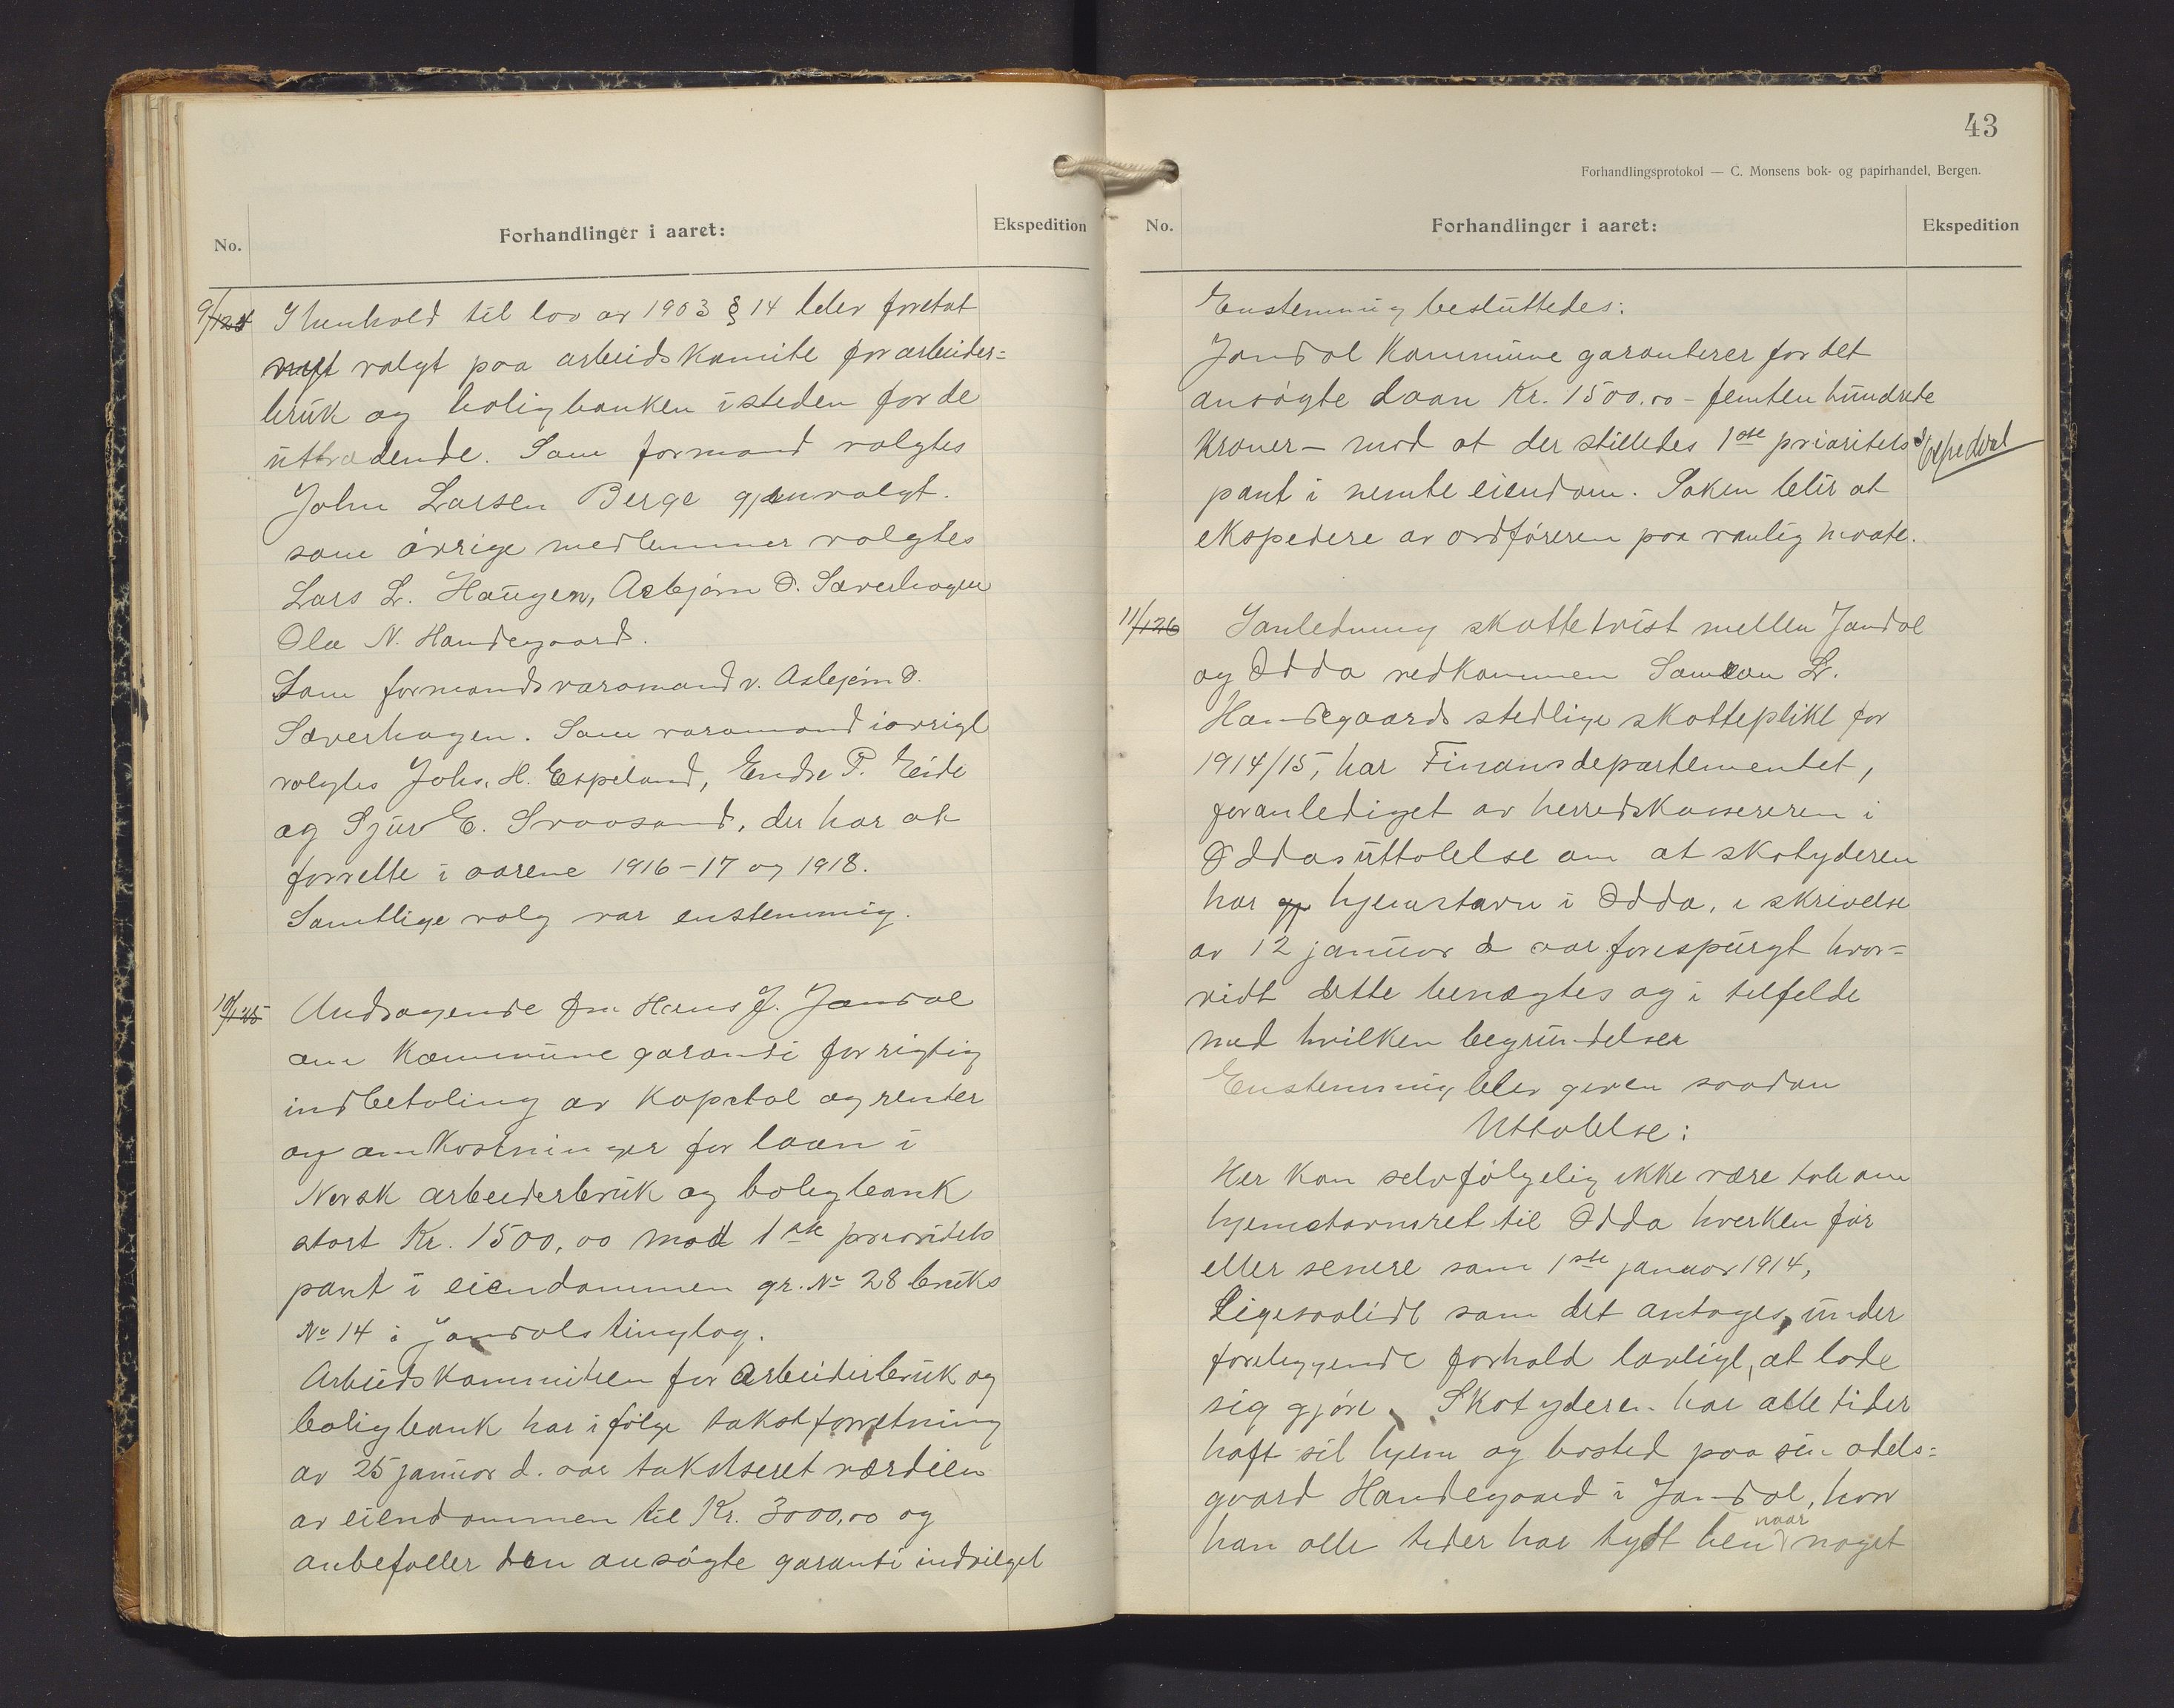 No.
Forhandlinger i aaret:
Ekspedition
9/124 I henhold til lov av 1903 § 14 blev foretat
valgt paa arbeidskomite for arbeider=
bruk og boligbanken isteden for de
uttrædende. Som formand valgtes
John Larsen Berge gjenvalgt.
som övrige medlemmer valgtes
Lars L. Haugen, Asbjörn O. Sæverhagen
Ola N. Handegaard.
Som formandsvaramand v. Asbjörn O.
Sæverhagen. Som varamand iövrigt
valgtes Johs. H. Espeland, Endre P. Eide
og Sjur E. Svaasand, der har at
forrette i aarene 1916-17 og 1918.
Samtlige valg var enstemmig.
10/125 Andragende fra Hans J. Jondal
om kommune garanti for rigtig
indbetaling av kapital og renter
og omkostninger for laan i
Norsk arbeiderbruk og boligbank
stort Kr. 1500,00 mod 1ste prioritets
pant i eiendommen gr. No 28 bruks
No 14 i Jondals tinglag.
Arbeidskommiteen for Arbeiderbruk og
boligbank har ifölge takstforretning
av 25 januar d. aar takstseret værdien
av eiendommen til Kr. 3000,00 og
anbefaller den ansögte garanti indvilget
43
Forhandlingsprotokol — C. Monsens bok- og papirhandel, Bergen.
No.
Forhandlinger i aaret:
Ekspedition
Enstemmig besluttedes:
Jondal Kommune garanterer for det
ansögte Laan Kr. 1500.00 - femten hundrede
Kroner - mod at der stilledes 1ste prioritets
Expederet
pant i nemte eiendom. Saken blir at
ekspedere av ordföreren paa vanlig maate.
11/126 I anledning skattetvist mellem Jondal
og Odda vedkommen Samson L.
Handegaards stedlige skatteplikt for
1914/15, har Finansdepartementet,
foranlediget av herredskassereren i
Oddas uttalelse om at skatyderen
har hjemstavn i Odda, i skrivelse
av 12 januar d aar forespurgt hvor=
vidt dette benægtes og i tilfelde
med hvilken begrundelser
Enstemmig blev given saadan
Uttalelse:
Her kan selvfölgelig ikke være tale om
hjemstavnsret til Odda hverken för
eller senere som 1ste januar 1914,
Ligesaalidt som det antages, under
foreliggende forhold lovligt, at lade
sig gjöre. Skatyderen har alle tider
haft sit hjem og bosted paa sin odels=
gaard Handegaard i Jondal, hvor
han alle tider har tydt hen naar noget